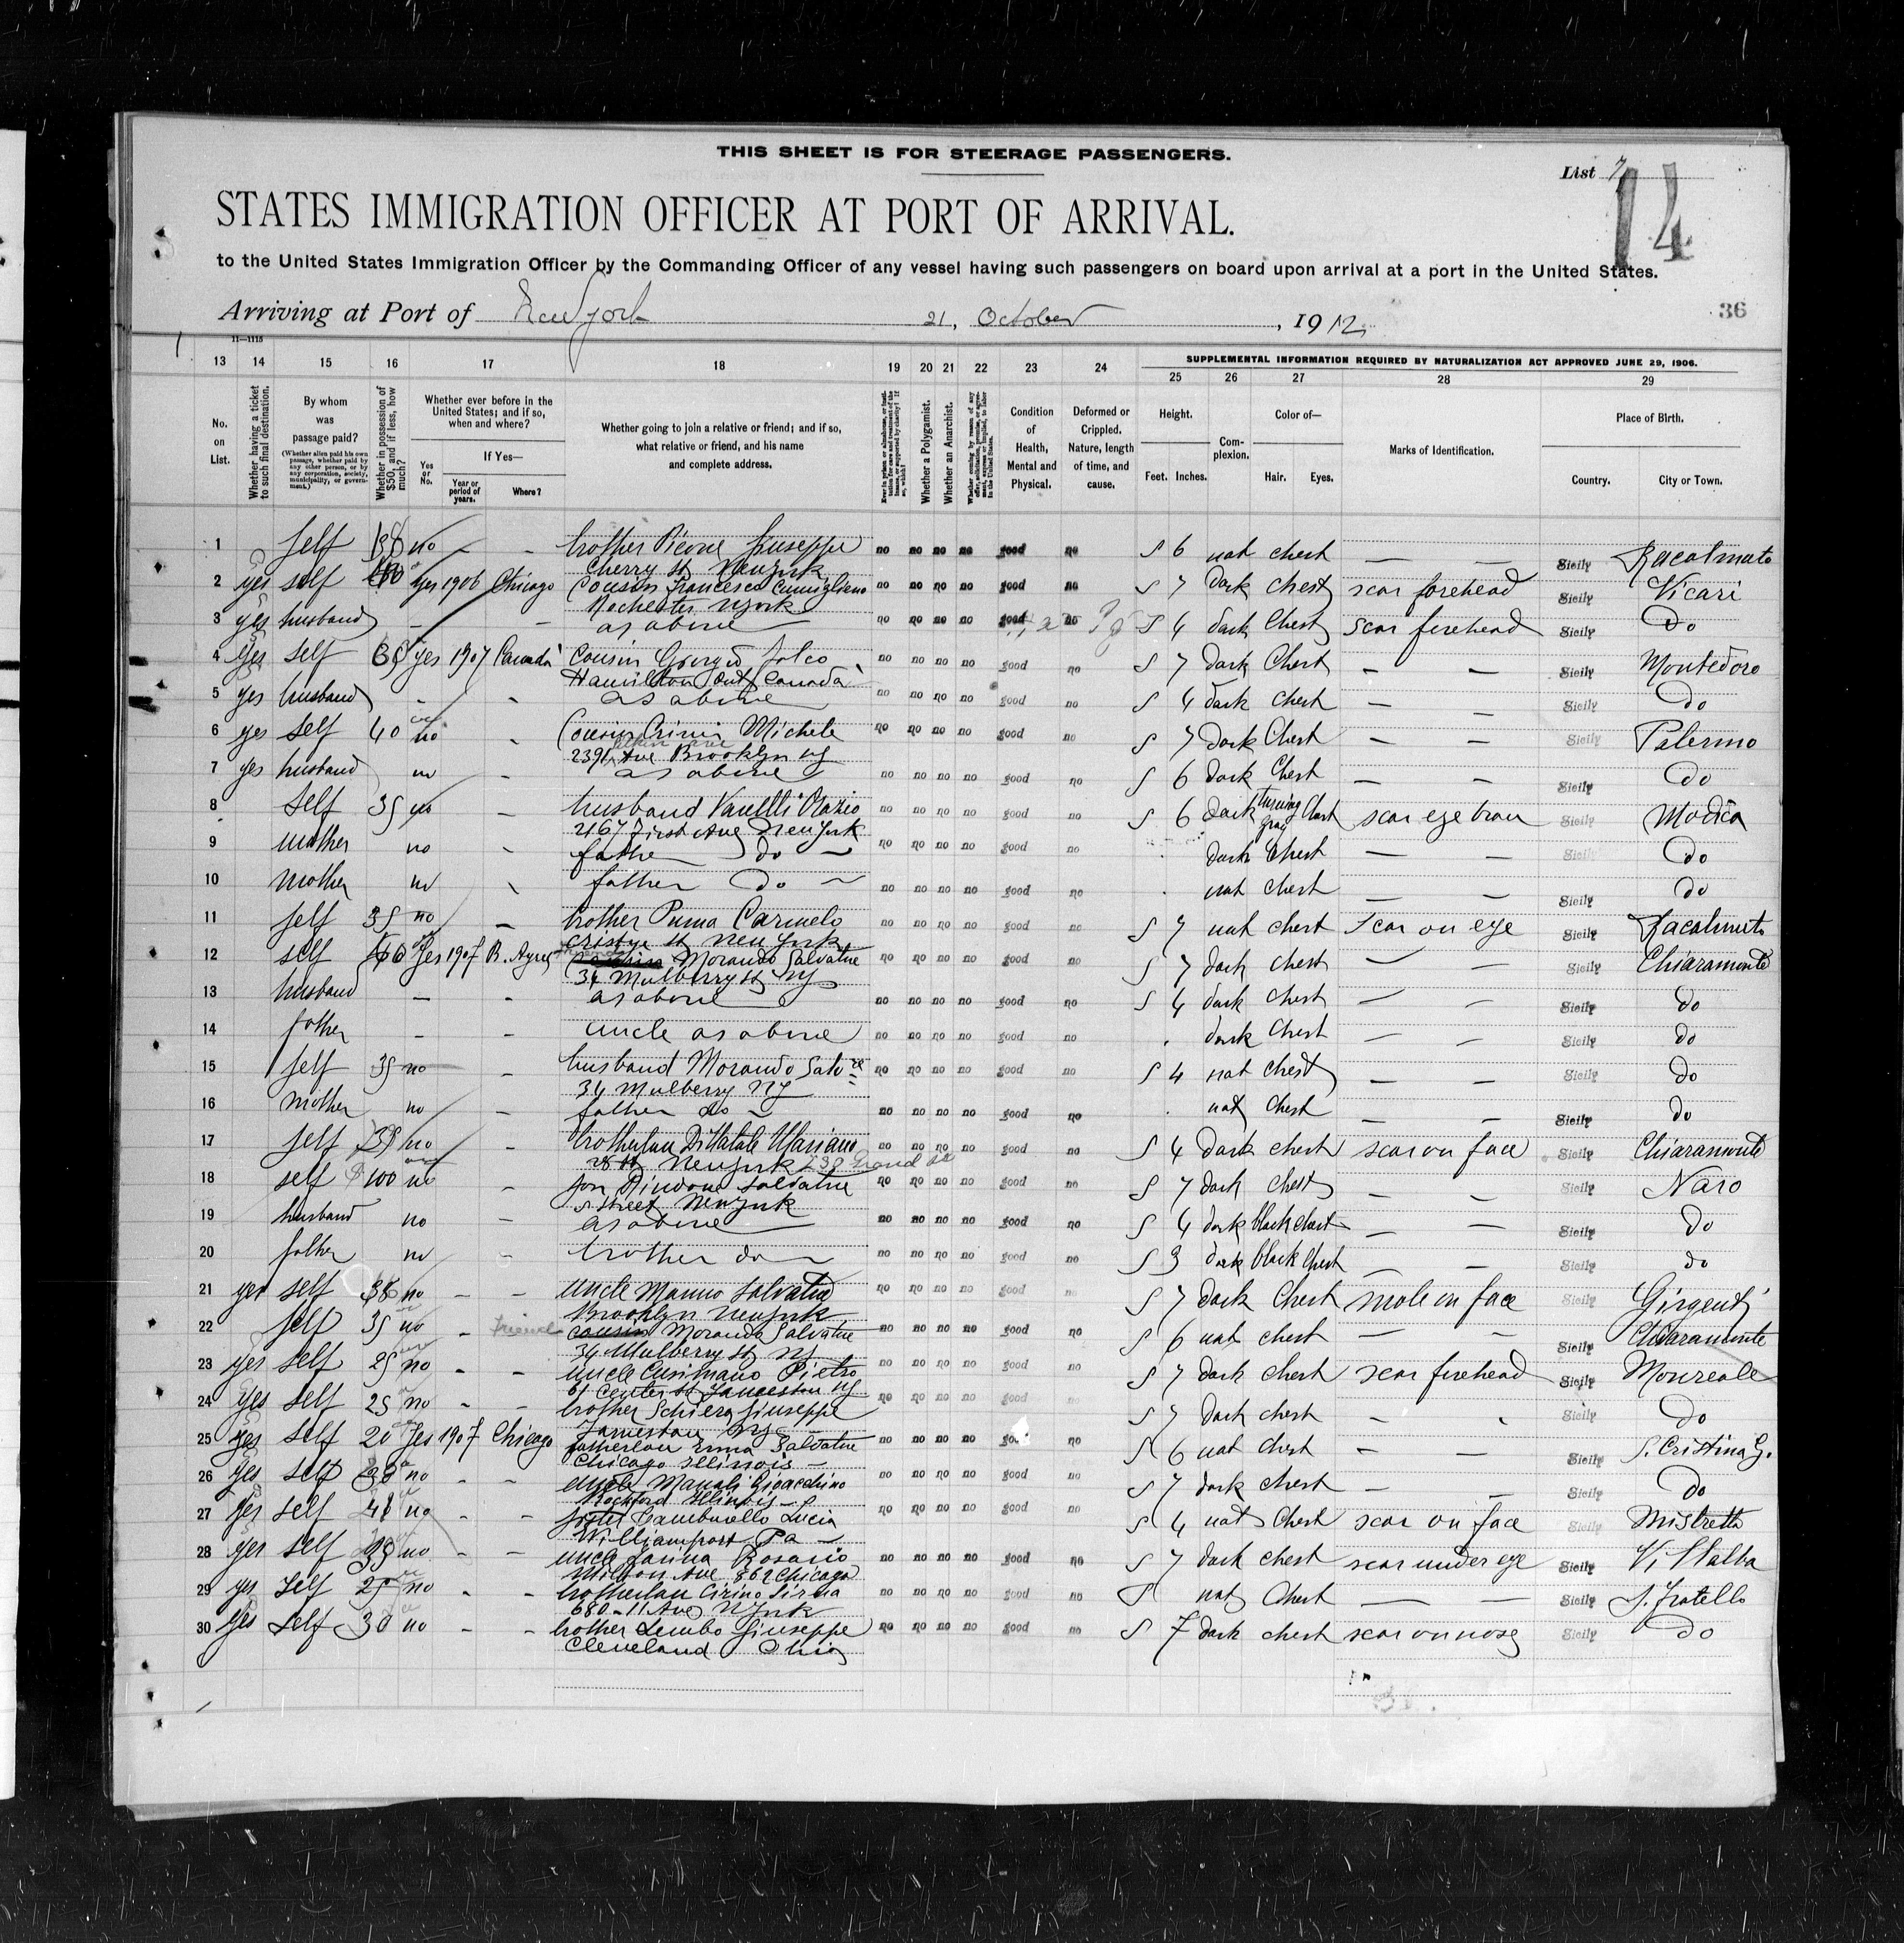 THIS SHEET IS FOR STEERAGE PASSENGERS.
List 7
14
STATES IMMIGRATION OFFICER AT PORT OF ARRIVAL.
to the United States Immigration Officer by the Commanding Officer of any vessel having such passengers on board upon arrival at a port in the United States.
Arriving at Port of New York 21, October, 1912
36
11—1115
SUPPLEMENTAL INFORMATION REQUIRED BY NATURALIZATION ACT APPROVED JUNE 29, 1906.
13 14 15 16 17 18 19 20 21 22 23 24 25 26 27 28 29
No. on List.
Whether having a ticket to such final destination.
By whom was passage paid?
(Whether alien paid his own passage, whether paid by any other person, or by any corporation, society, municipality, or government.)
Whether in possession of $50, and if less, how much?
Whether ever before in the United States; and if so, when and where?
Yes or No.
If Yes—
Year or period of years.
Where?
Whether going to join a relative or friend; and if so, what relative or friend, and his name and complete address.
Whether a Polygamist.
Whether an Anarchist.
Condition of Health, Mental and Physical.
Deformed or Crippled. Nature, length of time, and cause.
Height.
Feet. Inches.
Complexion.
Color of—
Hair. Eyes.
Marks of Identification.
Place of Birth.
Country. City or Town.
1 self no — — brother Giuseppe no no no no good no 5 6 nat chest — — Sicily Racalmuto
Cherry st New York
2 yes self yes 1906 Chicago Cousin Francesco no no no no good no 5 7 dark chest scar forehead Sicily Vicari
Rochester N York
3 yes husband - - as above no no no no good no 5 4 dark chest scar forehead Sicily Do
4 yes self yes 1907 Canada Cousin Giorgio Falco no no no no good no 5 7 dark chest — — Sicily Montedoro
Hamilton Ont Canada
5 yes husband - - as above no no no no good no 5 4 dark chest — — Sicily do
6 yes self 40 no - Cousin Crimi Michele no no no no good no 5 7 dark chest — — Sicily Palermo
2391 Ave Brooklyn NY
7 yes husband no - as above no no no no good no 5 6 dark chest — — Sicily do
8 self 35 no — husband no no no no good no 5 6 dark turning gray chest scar eye brow Sicily Modica
2167 First Ave New York
9 mother no - father do — no no no no good no dark chest — — Sicily do
10 mother no father do — no no no no good no nat chest — — Sicily do
11 self 35 no — brother Puma Carmelo no no no no good no 5 7 nat chest scar on eye Sicily Racalmuto
st New York
12 self yes 1907 B. Ayres Morando Salvatore no no no no good no 5 7 dark chest — — Sicily Chiaramonte
34 Mulberry st NY
13 husband — - as above no no no no good no 5 4 dark chest — — Sicily do
14 father — - uncle as above no no no no good no dark chest — — Sicily do
15 self 35 no — husband Morando Salv no no no no good no 5 4 nat chest — — Sicily do
34 Mulberry NY
16 mother no — father do no no no no good no nat chest — — Sicily do
17 self no - DiNatale Mariano no no no no good no 5 4 dark chest scar on face Sicily Chiaramonte
New York Grand st
18 self $100 no - son Salvatore no no no no good no 5 7 dark chest — — Sicily Naro
street New York
19 husband no — as above no no no no good no 5 4 dark black chest — — Sicily Do
20 father no - brother do — no no no no good no 5 3 dark black chest — — Sicily do
21 yes self no - - uncle Manno Salvatore no no no no good no 5 7 dark chest mole on face Sicily Girgenti
Brooklyn New York
22 self 35 no - friend cousin Morando Salvatore no no no no good no 5 6 nat chest — - Sicily Chiaramonte
34 Mulberry st NY
23 yes self 25 no - - uncle Cusimano Pietro no no no no good no 5 7 dark chest scar forehead Sicily Monreale
Center st NY
24 yes self 25 no - - brother Schiera Giuseppe no no no no good no 5 7 dark chest - - Sicily Do
NY
25 yes self 20 yes 1907 Chicago Salvatore no no no no good no 5 6 nat chest — — Sicily S. Cristina G.
Chicago Illinois —
26 yes self no - - uncle Gioacchino no no no no good no 5 7 dark chest — — Sicily Do
Rockford Illinois —
27 yes self no - - sister Lucia no no no no good no 5 4 nat chest scar on face Sicily Mistretta
Williamsport Pa —
28 yes self no - - uncle Rosario no no no no good no 5 7 dark chest scar under eye Sicily Villalba
Milton Ave 862 Chicago
29 yes self no - - Cirino no no no no good no 5 nat chest — — Sicily S. Fratello
680-11 Ave N York
30 yes self 30 no - - brother Lembo Giuseppe no no no no good no 5 7 dark chest scar on nose Sicily Do
Cleveland Ohio